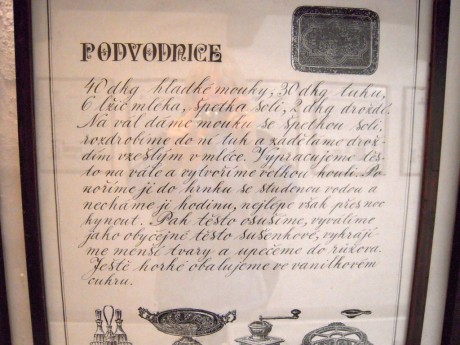 PODVODNICE
40 dkg hladké mouky, 30 dkg tuku,
6 lžic mléka, špetka soli, 2 dkg droždí.
Na vál dáme mouku se špetkou soli,
rozdrobíme do ní tuk a zaděláme drož-
dím vzešlým v mléce. Vypracujeme těs-
to na vále a vytvoříme velkou kouli. Po
noříme ji do hrnku se studenou vodou a
necháme ji hodinu, nejlépe však přes noc
kynout. Pak těsto osušíme, vyválíme
jako obyčejné těsto sušenkové, vykrájí
me menší tvary a upečeme do růžova.
Ještě horké obalujeme ve vanilkovém
cukru.